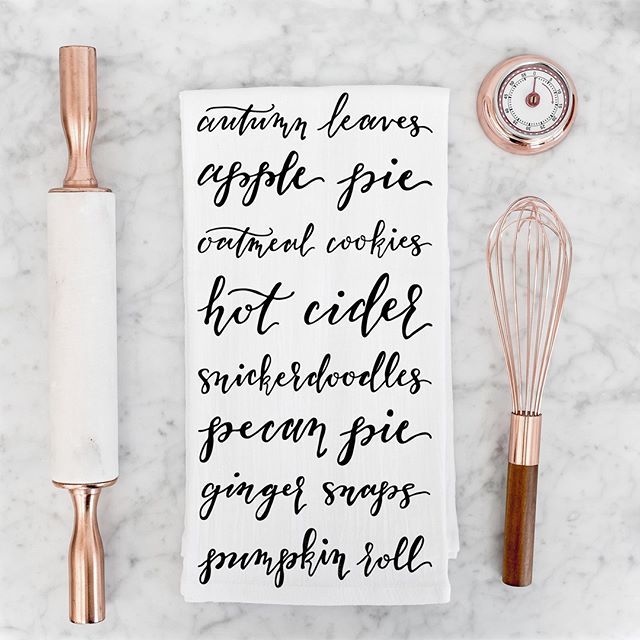 autumn leaves
apple pie
oatmeal cookies
hot cider
snickerdoodles
pecan pie
ginger snaps
pumpkin roll